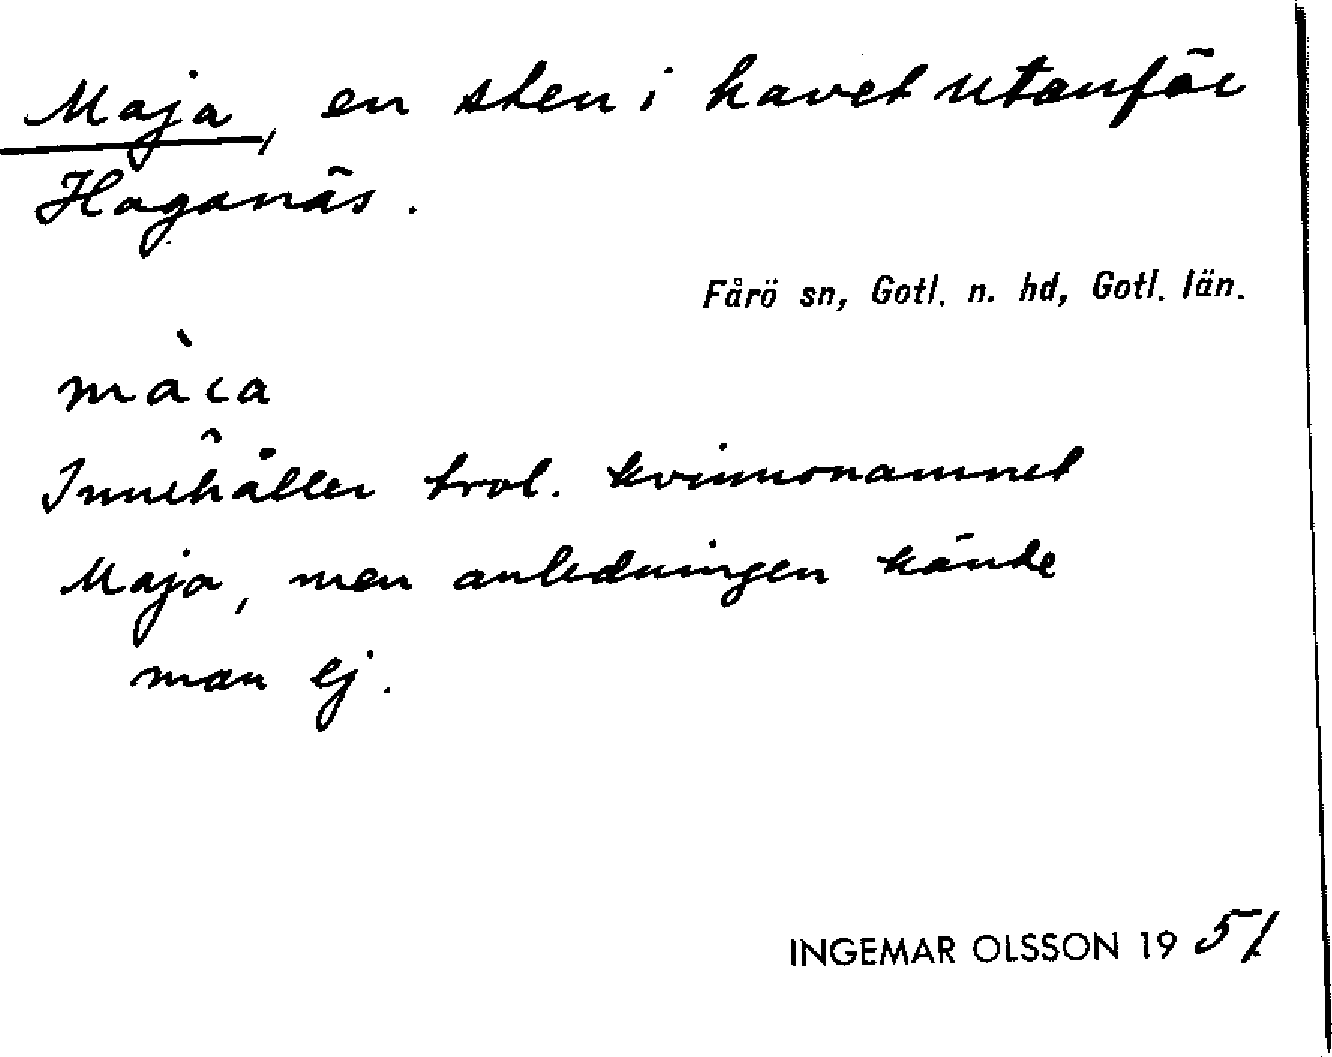 Maja, en sten i havet utanför
Haganäs.
Fårö sn, Gotl. n. hd, Gotl. län.
màɩa
Innehåller trol. kvinnonamnet
Maja, men anledningen kände
man ej.
INGEMAR OLSSON 1951